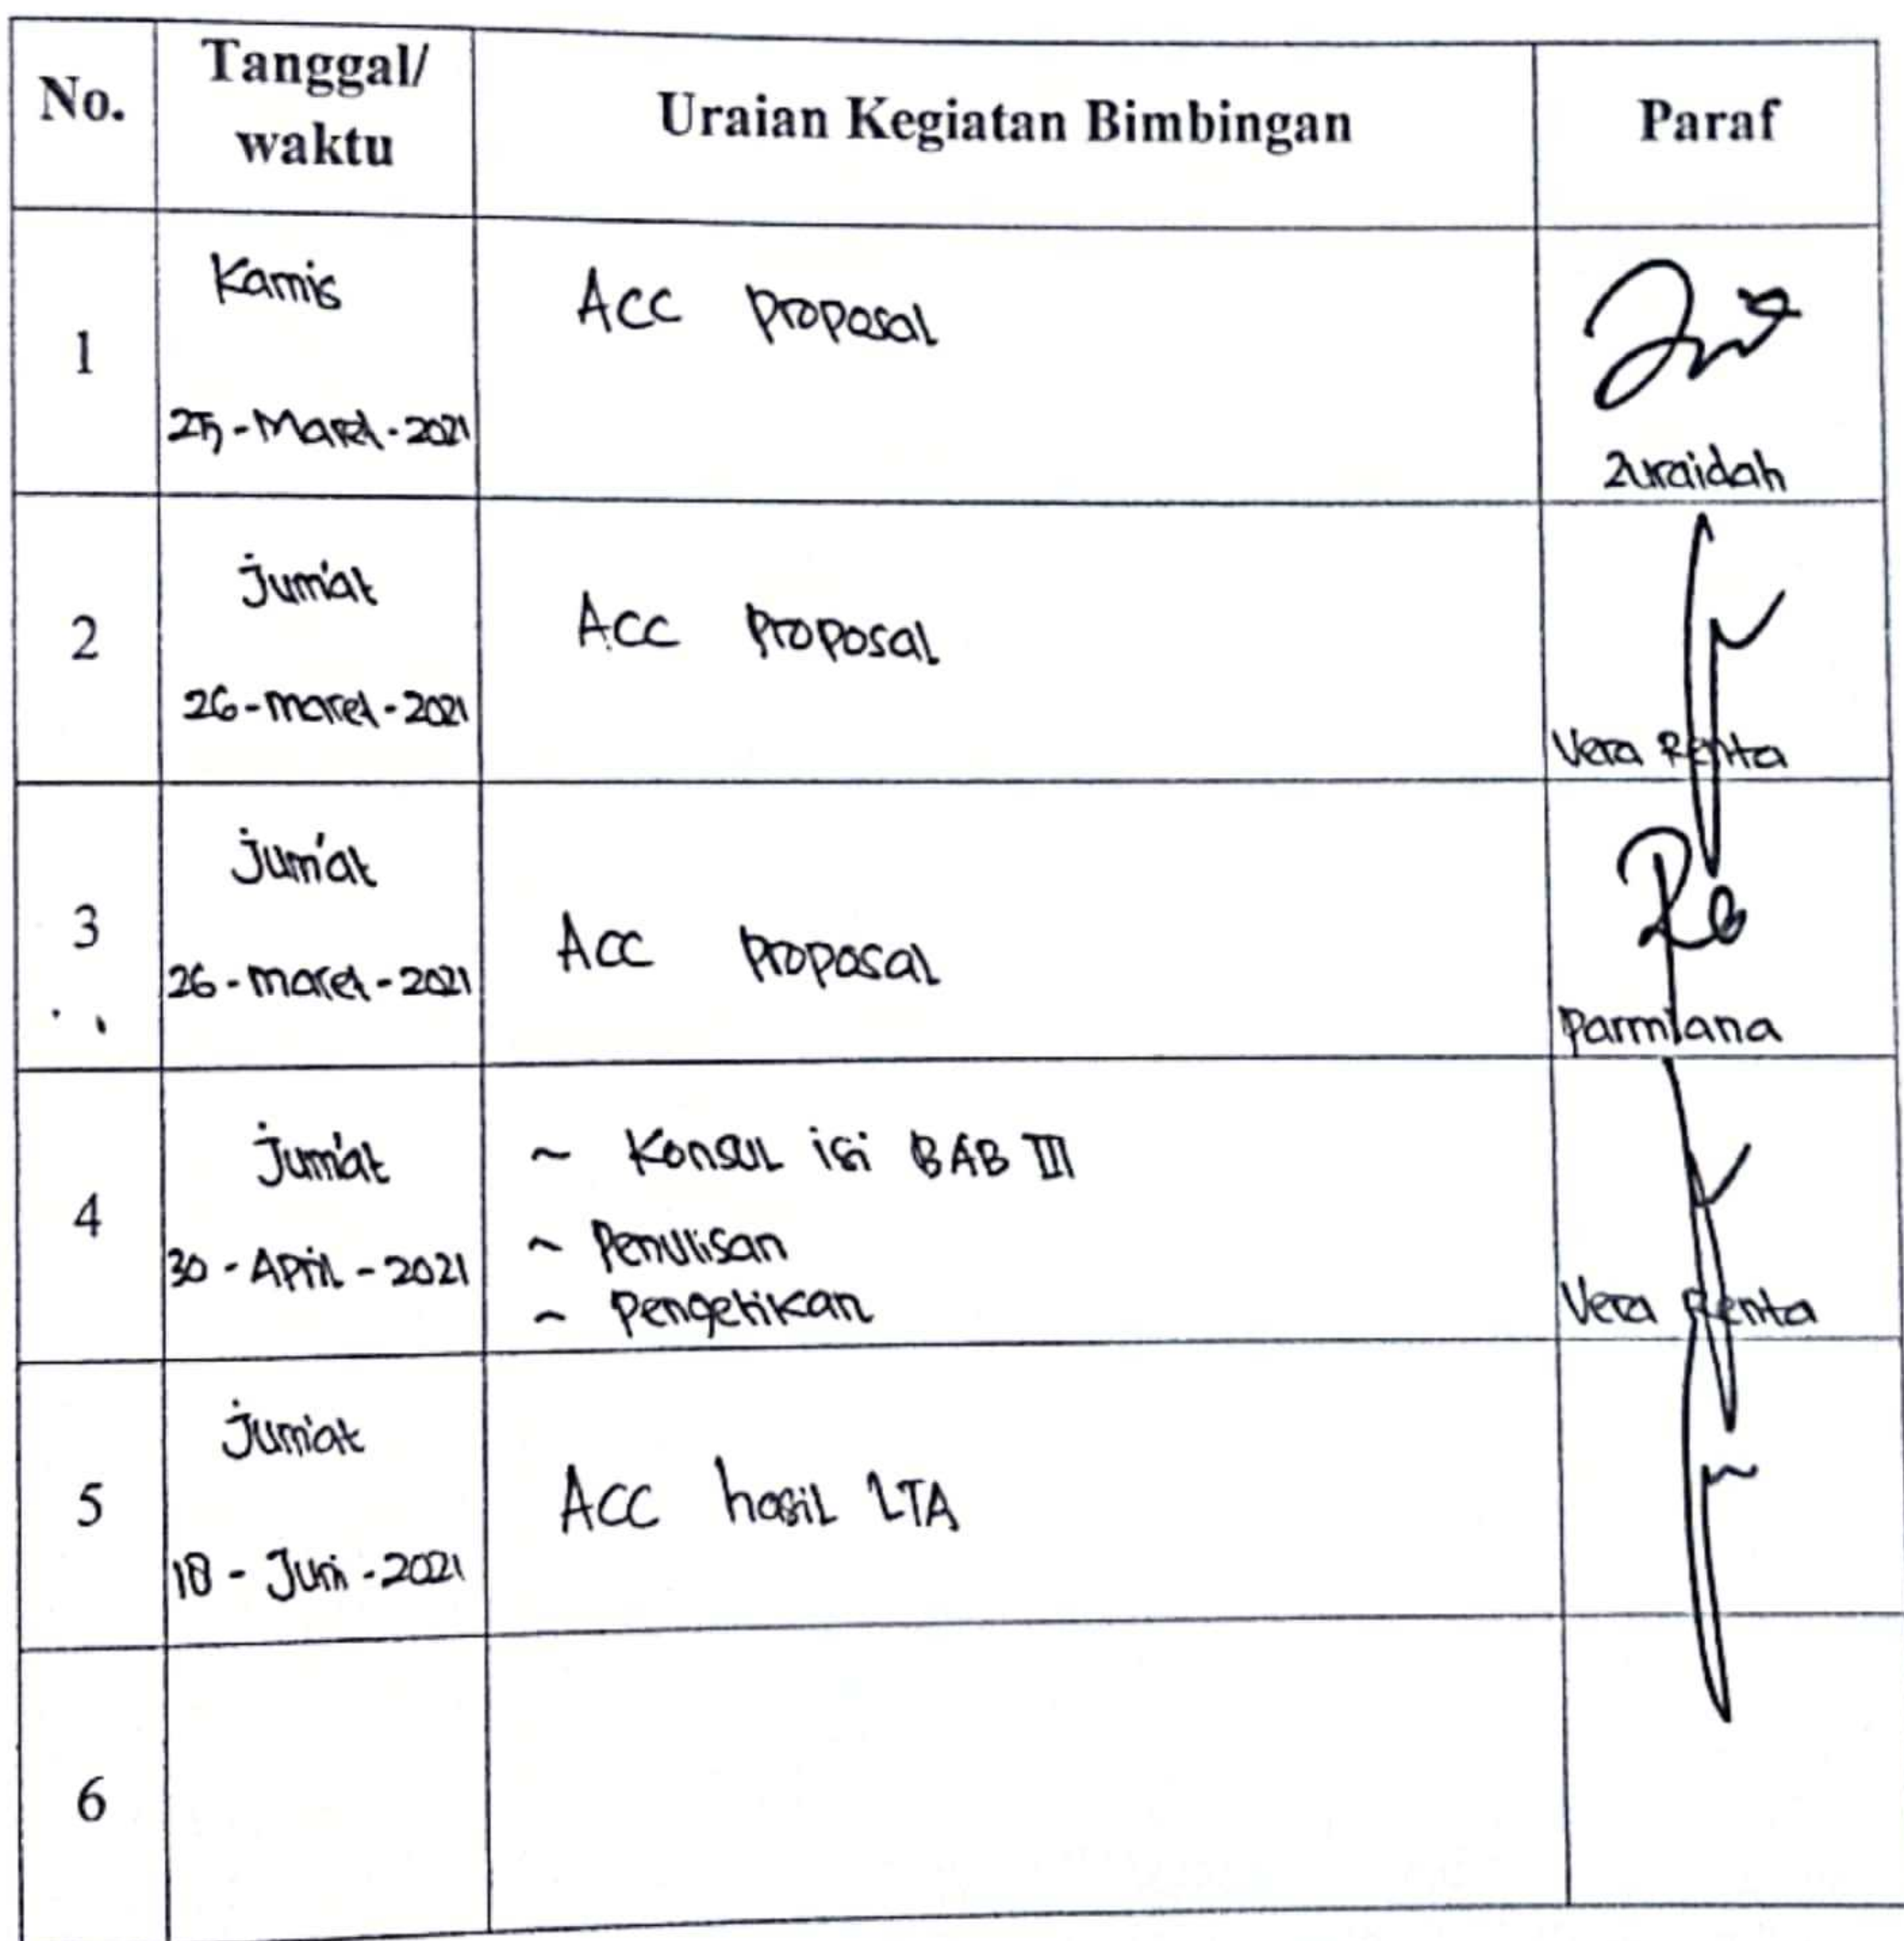 No.
Tanggal/
waktu
Uraian Kegiatan Bimbingan
Paraf
1
Kamis
25-Maret-2021
ACC proposal
Zuraidah
2
Jum'at
26-maret-2021
ACC proposal
Vera Renta
3
Jum'at
26-maret-2021
ACC proposal
Parmiana
4
Jum'at
30-April-2021
~ Konsul isi BAB III
~ Penulisan
~ Pengetikan
Vera Renta
5
Jum'at
18-Juni-2021
ACC hasil LTA
6